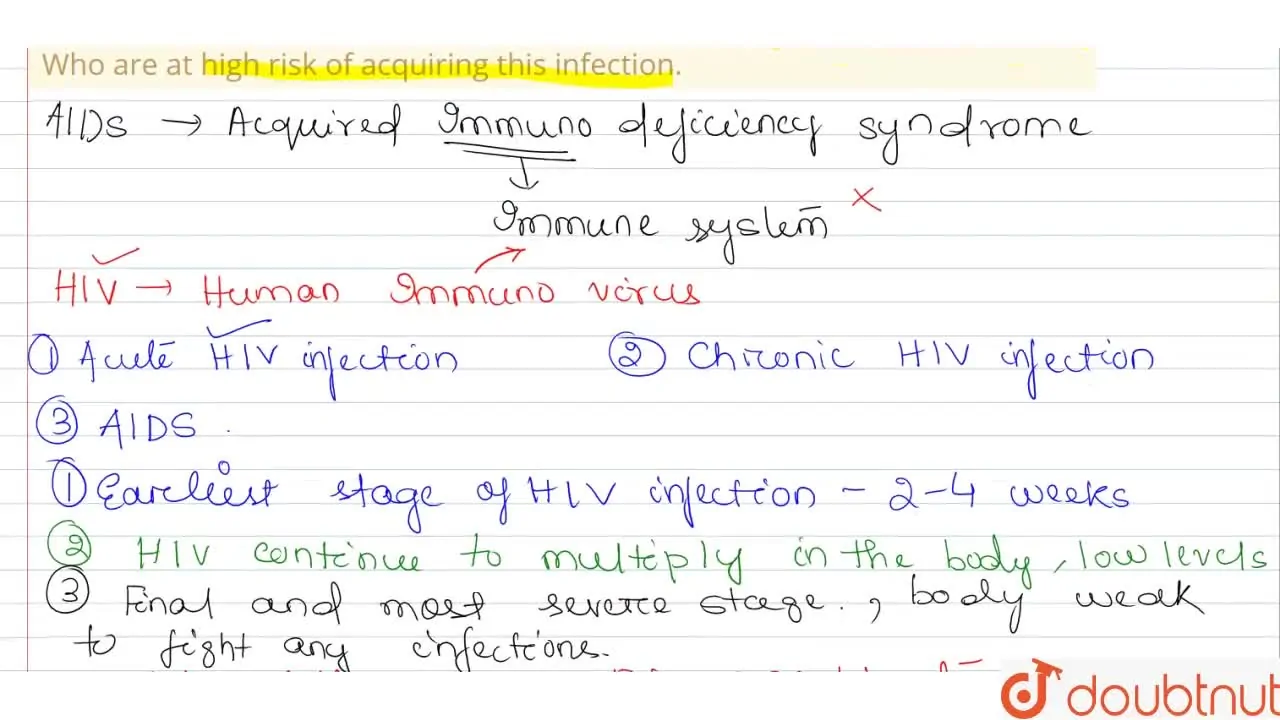 Who are at high risk of acquiring this infection.
AIDs → Acquired Immuno deficiency syndrome
Immune system ×
HIV → Human Immuno virus
① Acute HIV infection ② Chronic HIV infection
③ AIDS
① Earliest stage of HIV infection - 2-4 weeks
② HIV continue to multiply in the body, low levels
③ Final and most severe stage., body weak
to fight any infections.
doubtnut